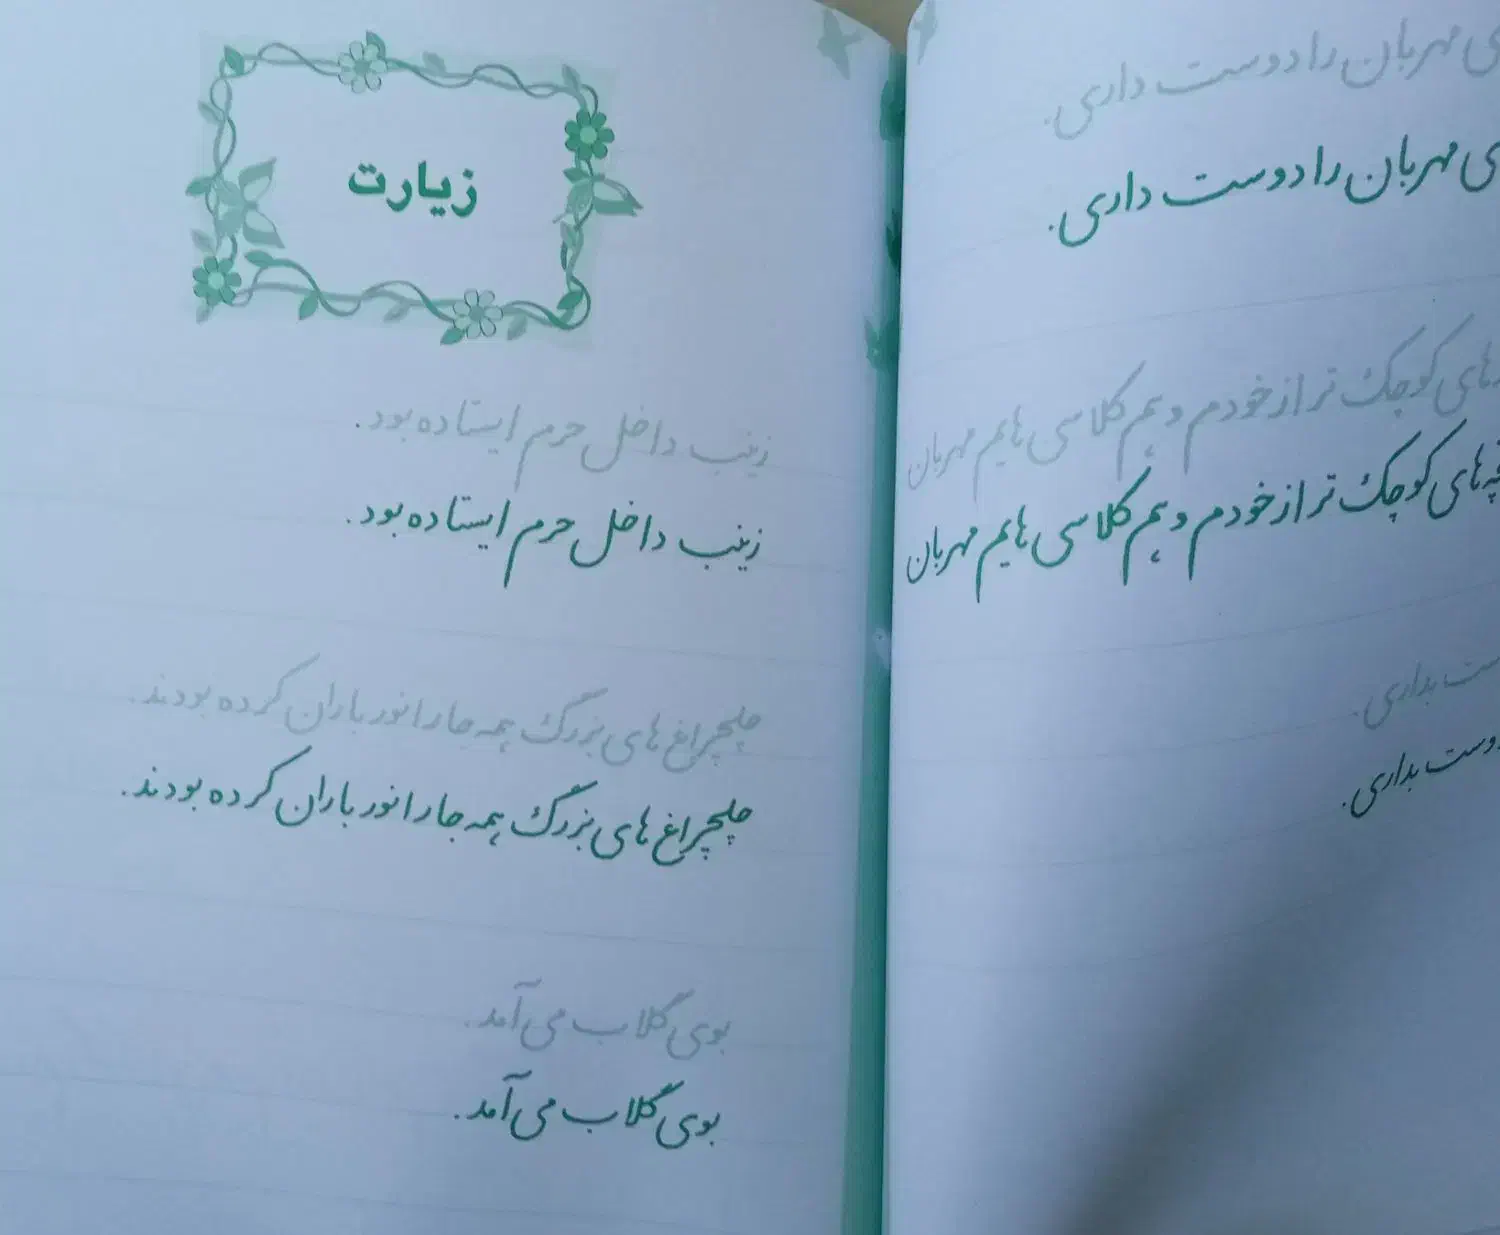 مهربان را دوست داری.
مهربان را دوست داری.
های کوچک‌تر از خودم و هم‌کلاسی‌هایم مهربان
های کوچک‌تر از خودم و هم‌کلاسی‌هایم مهربان
بداری.
دوست بداری.
زیارت
زینب داخل حرم ایستاده بود.
زینب داخل حرم ایستاده بود.
چلچراغ‌های بزرگ همه‌جا را نورباران کرده بودند.
چلچراغ‌های بزرگ همه‌جا را نورباران کرده بودند.
بوی گلاب می‌آمد.
بوی گلاب می‌آمد.